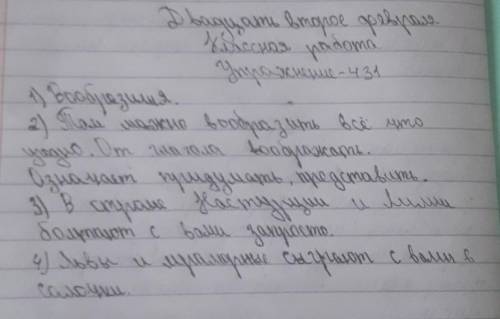 Двадцать второе февраля
Классная работа
Упражнение-431
1) Вообразилия.
2) Там можно вообразить всё что
угодно. От глагола воображать.
Означает придумать, представить.
3) В стране Настурции и Лилии
болтают с вами запросто.
4) Львы и мраморные сыграют с вами в
салочки.